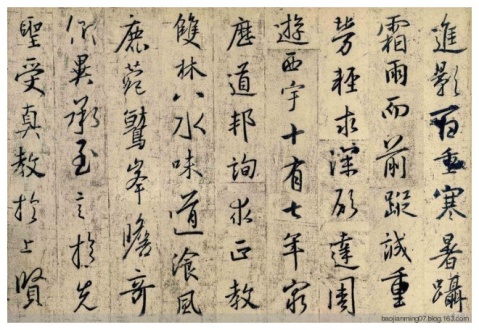 進影百重寒暑躡
霜雨而前蹤誠重
勞輕求深願達周
遊西宇十有七年窮
歷道邦詢求正教
雙林八水味道飡風
鹿菀鷲峯瞻奇
仰異承至言於先
聖受真教於上賢
baojianming07.blog.163.com